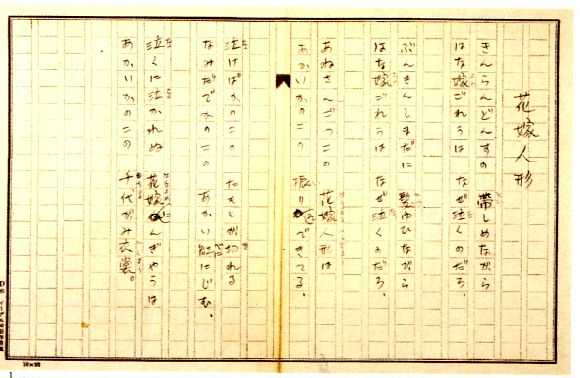 花嫁人形
きんらんどんすの　帯しめながら
はな嫁ごれうは　なぜ泣くのだろ、
ぶんきんしまだに　髪ゆひながら
はな嫁ごれうは　なぜ泣くのだろ、
あねさんごつこの　花嫁人形は
あかいかのこの　振りそできてる、
泣けばかのこの　たもとが切れる
なみだでかのこの　あかい紅にじむ、
泣くに泣かれぬ　花嫁にんぎやうは
あかいかのこの　千代がみ衣裳。
1